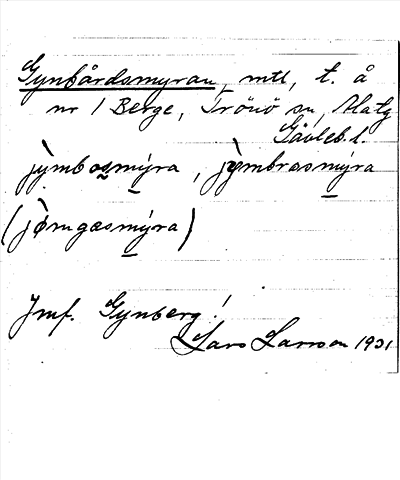 Gynbårdsmyran, mtl, t. å
nr 1 Berge, Trönö sn, Hälsg
Gävleb. l.
jỳmbosmýra, jỳmbrasmýra
(jø̀mgasmýra)
Jmf. Gynberg!
Lars Larsson 1931